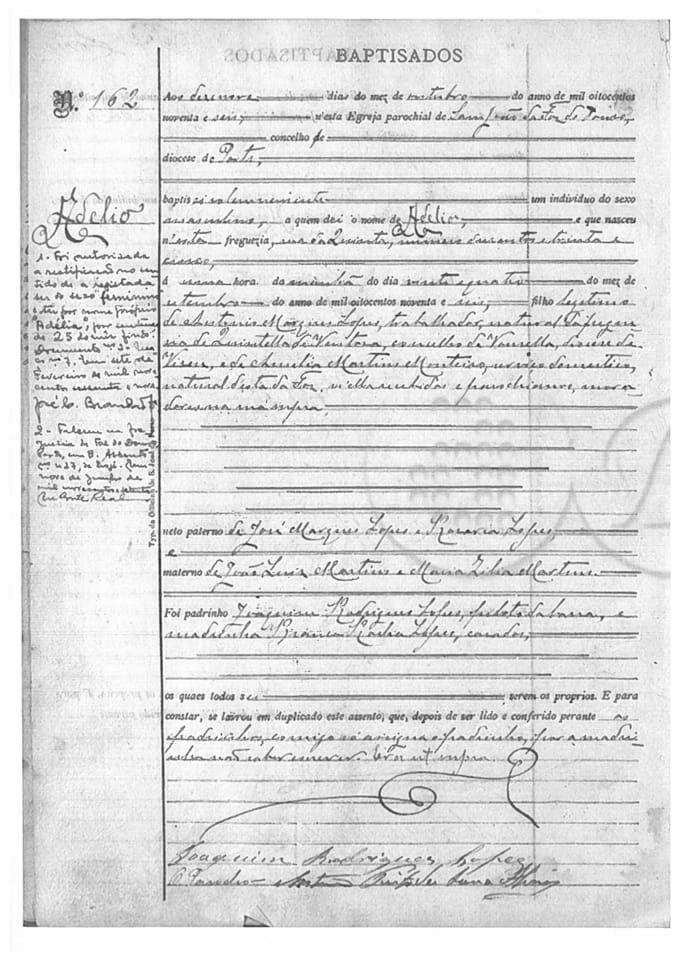 BAPTISADOS
N.º 162
Aos dezenove dias do mez de outubro do anno de mil oitocentos
noventa e seis, n'esta Egreja parochial de Sam João da Foz do Douro,
concelho e
diocese do Porto,
baptisei solemnemente um individuo do sexo
masculino, a quem dei o nome de Adelio, e que nasceu
n'esta freguezia, rua da Quinta, numero duzentos e trinta e
cinco,
á uma hora da manhã do dia vinte e quatro do mez de
setembro do anno de mil oitocentos noventa e seis, filho legitimo
de Antonio Marques Lopes, trabalhador, natural da fregue
zia de Queirella de Ventosa, concelho de Vouzella, diocese de
Vizeu, e de Amelia Martins Monteiro, serviço domestico,
natural d'esta da Foz, n'ella recebidos e parochianos, mora
dores na
neto paterno de José Marques Lopes e Rosaria Lopes,
e
materno de João Luiz Martins e Maria Martins.
Foi padrinho Joaquim Rodrigues Lopes, piloto da barra, e
madrinha Rosa Lopes, casados,
os quaes todos sei serem os proprios. E para
constar, se lavrou em duplicado este assento, que, depois de ser lido e conferido perante os
padrinhos, comigo só assigna o padrinho, por a madri
nha não saber escrever. Era ut supra.
Joaquim Rodrigues Lopes
O Parocho
Adelio
1. Foi autorizada
a rectificação no sen
tido de a registada
ser do sexo feminino
e ter por nome próprio
Adélia, por
de 25 do mês findo.
Documento nº
nº 7. Em sete de
Fevereiro de mil nove
centos sessenta e
José C. Brandão
2 - Faleceu na fre
guesia da Foz do Douro
Porto, em 8. Assento
nº 427, de Em
nove de Junho de
mil novecentos
Corte Real